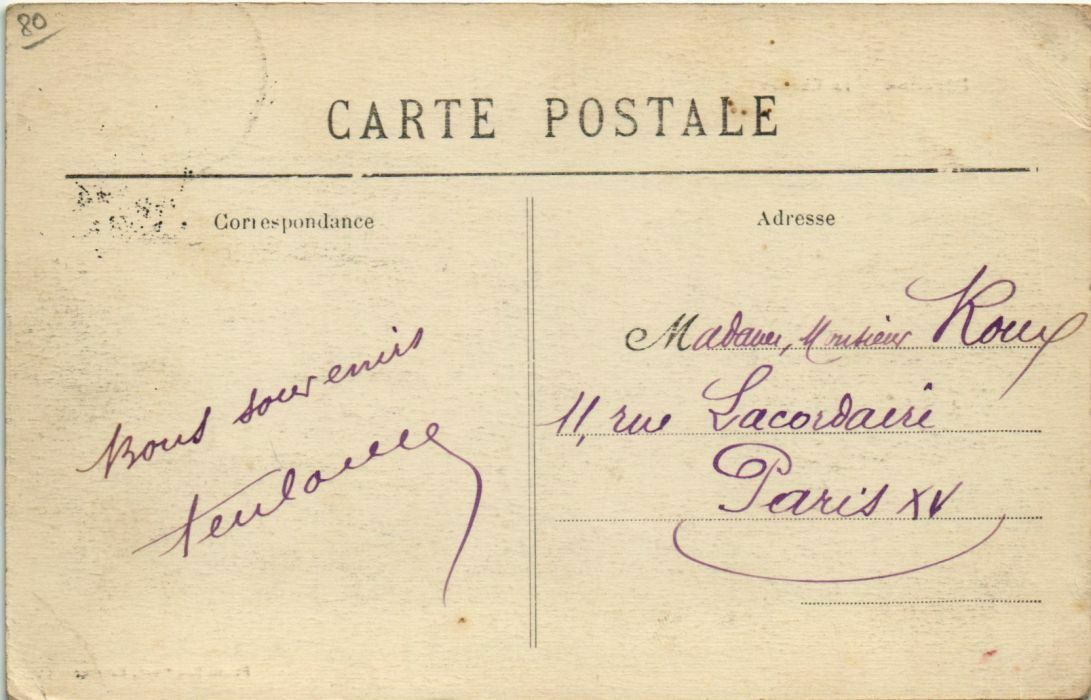 80
CARTE POSTALE
Correspondance
Bons souvenirs
Adresse
Madame, Monsieur Roux
11, rue Lacordaire
Paris XV